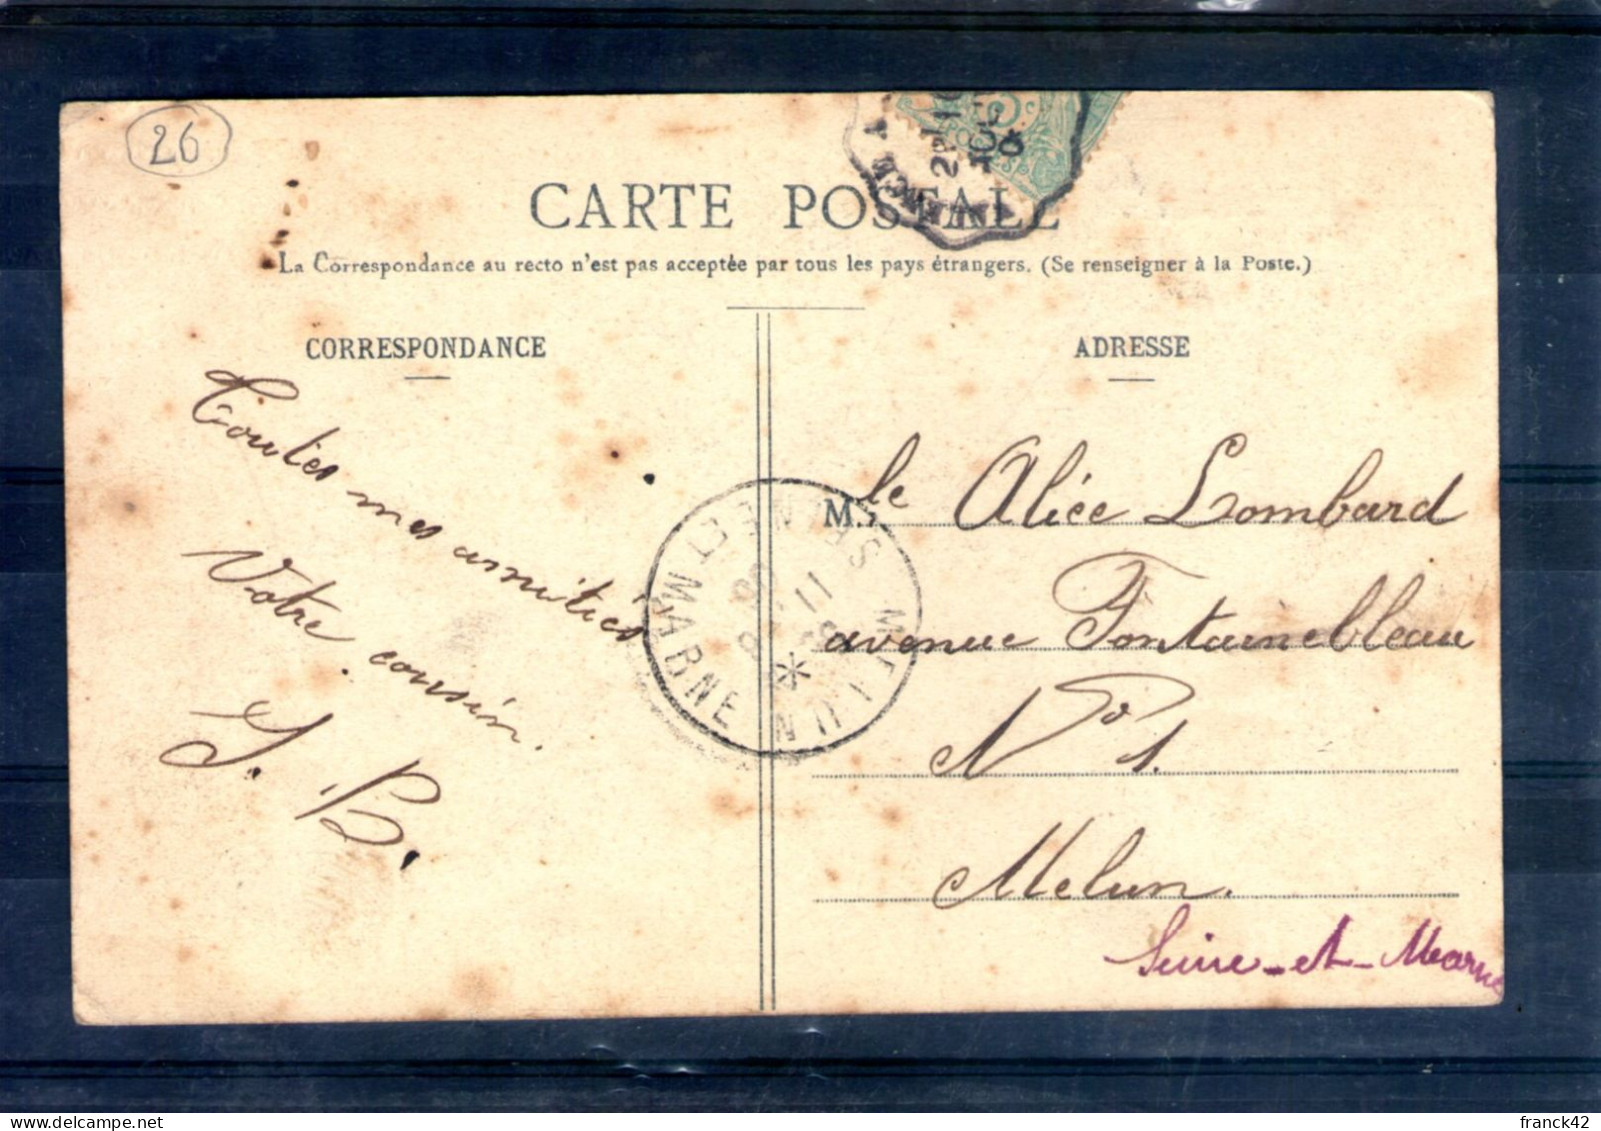 26
CARTE POSTALE
La Correspondance au recto n'est pas acceptée par tous les pays étrangers. (Se renseigner à la Poste.)
CORRESPONDANCE
Toutes mes amitiés
Votre cousin.
J. B.
MELUN
SEINE-ET-MARNE
ADRESSE
M.lle Alice Lombard
avenue Fontainebleau
No 1.
Melun.
Seine-et-Marne
franck42